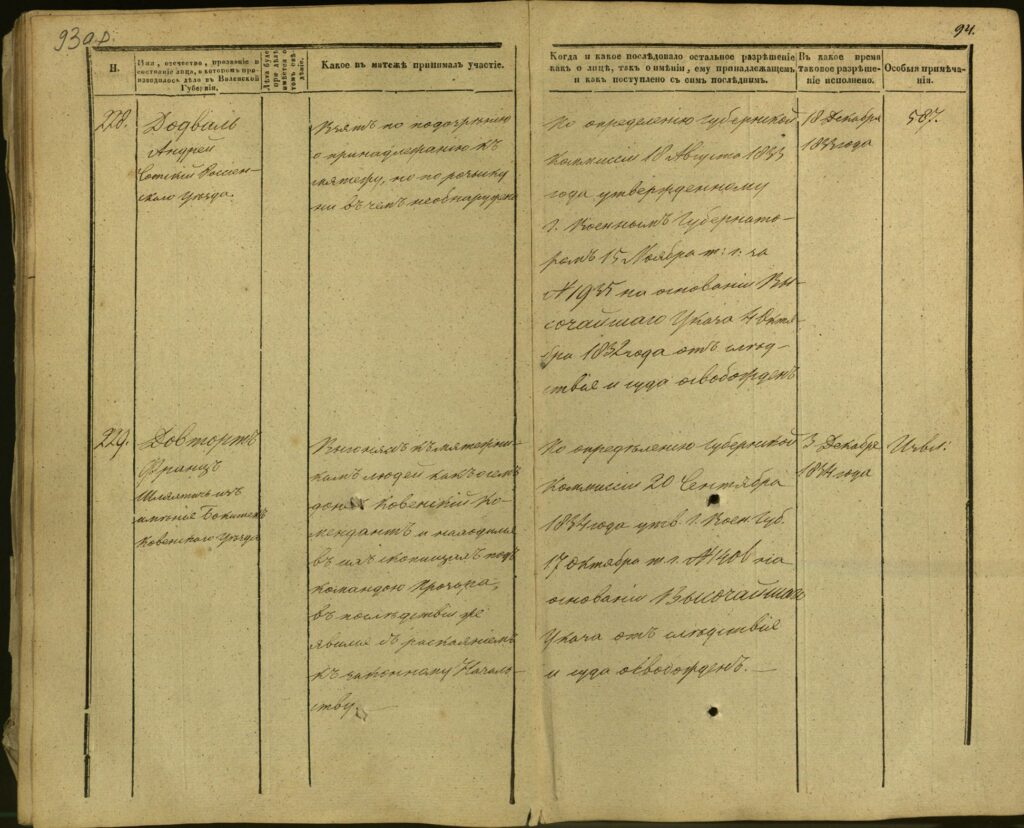 93 об.
94.
Н.
Имя, отчество, прозвание и
состояніе лица, о которомъ про-
изводилось дѣло въ Виленской
Губерніи.
Лѣта буде
при дѣлѣ
имѣется о
томъ свѣ-
дѣніе.
Какое въ мятежѣ принималъ участіе.
Когда и какое послѣдовало остальное разрѣшеніе
какъ о лицѣ, такъ о имѣніи, ему принадлежащемъ
и какъ поступлено съ симъ послѣднимъ.
Въ какое время
таковое разрѣше-
ніе исполнено.
Особыя примѣча-
нія.
228.
Додваль
Андрей
Сотскій Россіен-
скаго уѣзда.
Взятъ по подозрѣнію
о принадлежанію къ
мятежу, но по розыску
ни въ чемъ необнаруженъ
По опредѣленію Губернской
Коммисіи 18 Августа 1833
года утвержденному
г. Военнымъ Губернато-
ромъ 15 Ноября т: г. за
№ 1935 на основаніи Вы-
сочайшаго Указа 4 Октя-
бря 1832 года отъ слѣд-
ствія и суда освобожденъ
18 Декабря
1833 года
587.
229.
Довтортъ
Францъ
Шляхтичъ изъ
имѣнія
Ковенскаго уѣзда
Выгонялъ къ мятежни-
камъ людей какъ
Ковенскій Ко-
мендантъ и находился
въ ихъ скопищахъ подъ
командою Прозора,
въ послѣдствіи же
явился съ раскаяніемъ
къ законному Началь-
ству.
По опредѣленію Губернской
Коммисіи 20 Сентября
1834 года утв. г. Воен Губ.
17 Октября т. г. № 1406 на
основаніи Высочайшаго
Указа отъ слѣдствія
и суда освобожденъ.
3 Декабря
1834 года